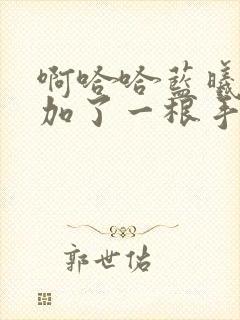 啊哈哈蓝曦
加了一根手
郭世佑